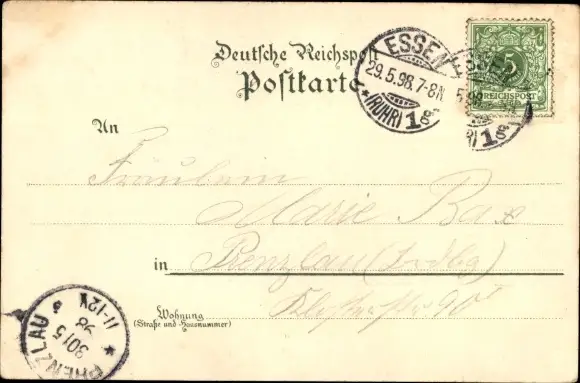 Deutsche Reichspost
Postkarte
ESSEN
29.5.98.7-8N
*(RUHR) 1g
5
REICHSPOST
An
Fräulein
Marie
in Prenzlau
Wohnung
(Straße und Hausnummer)
PRENZLAU
30/5
98
11-12V